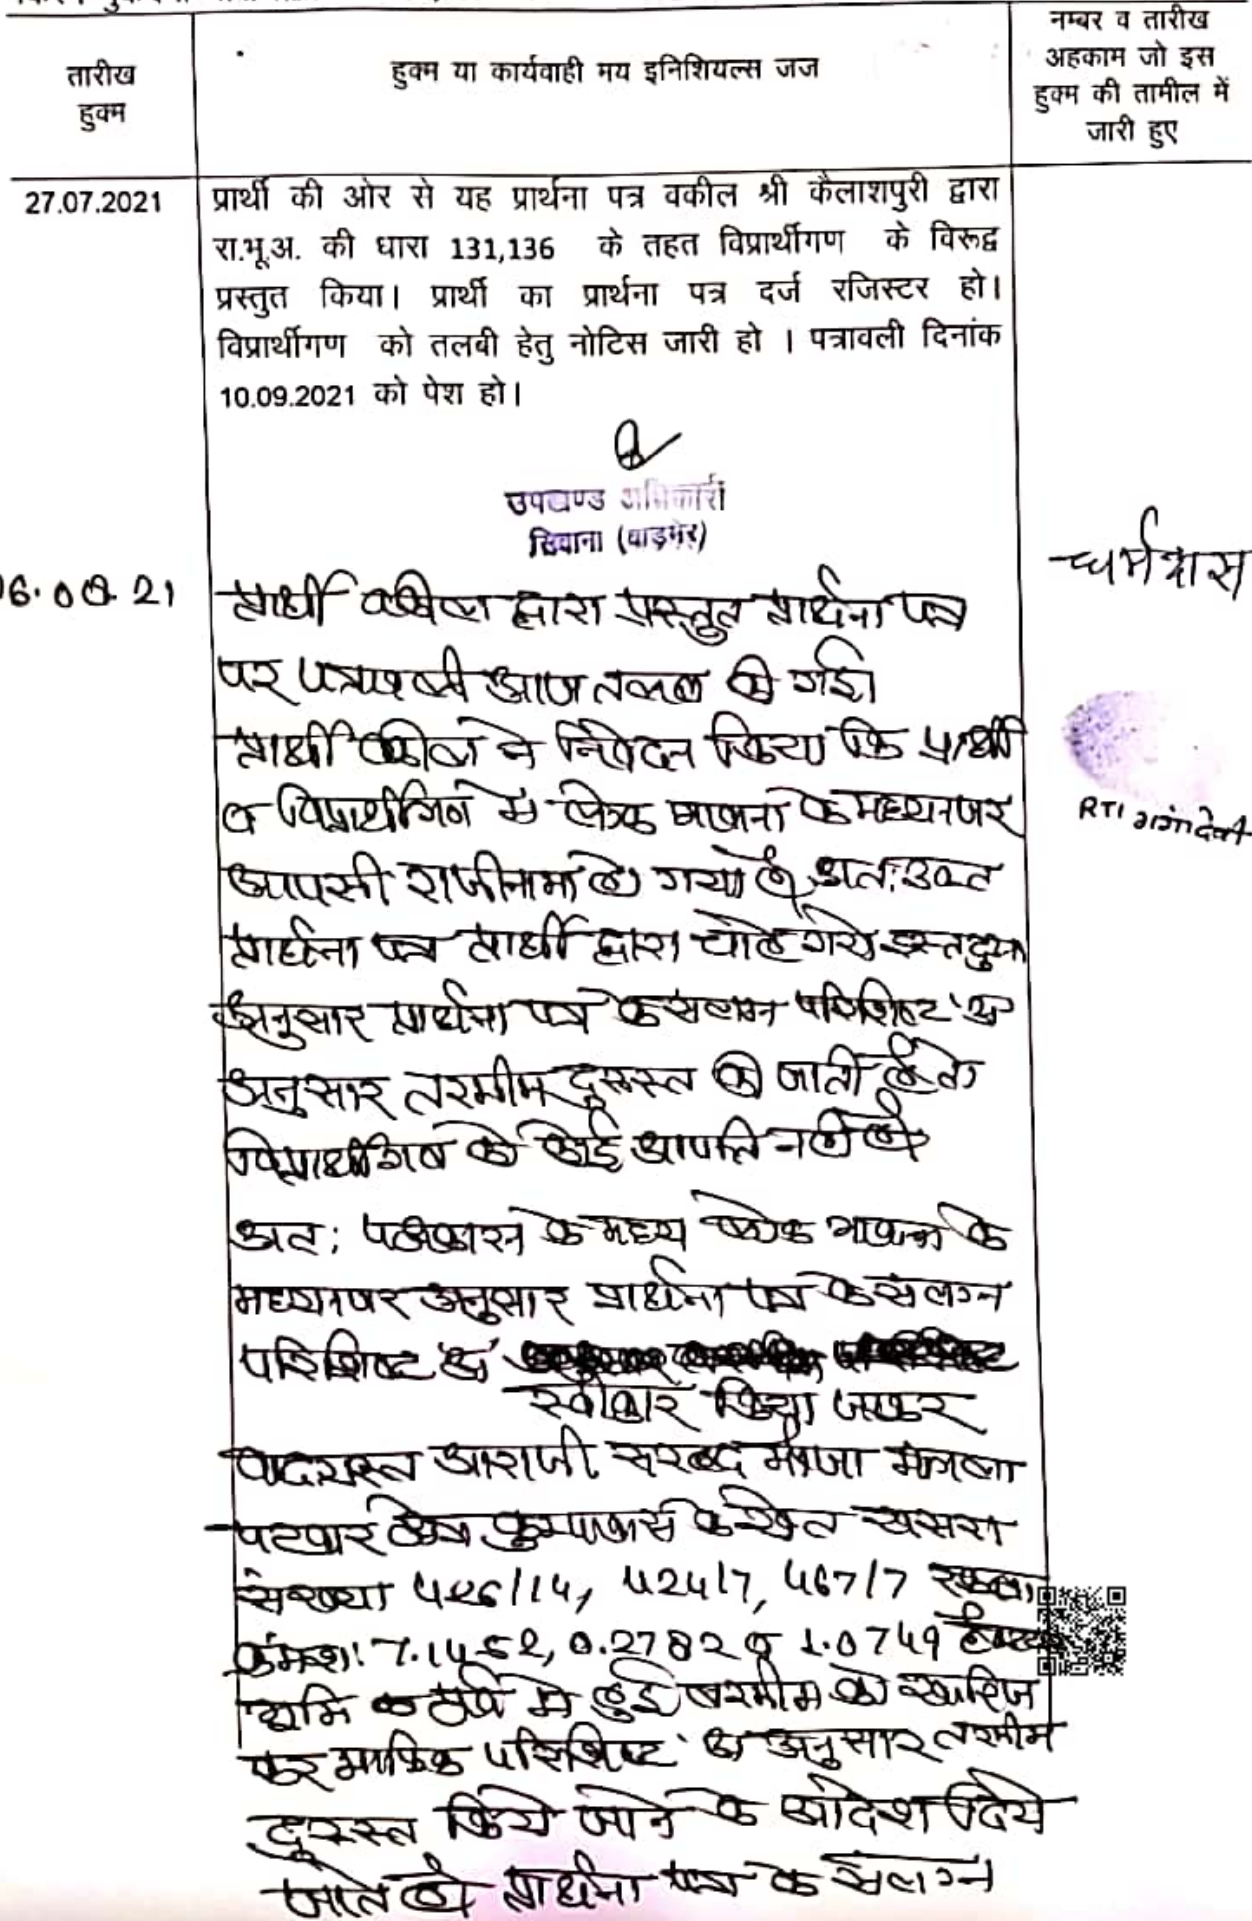 तारीख
हुक्म
हुक्म या कार्यवाही मय इनिशियल्स जज
नम्बर व तारीख
अहकाम जो इस
हुक्म की तामील में
जारी हुए
27.07.2021
प्रार्थी की ओर से यह प्रार्थना पत्र वकील श्री कैलाशपुरी द्वारा
रा.भू.अ. की धारा 131,136 के तहत विप्रार्थीगण के विरूद्व
प्रस्तुत किया। प्रार्थी का प्रार्थना पत्र दर्ज रजिस्टर हो।
विप्रार्थीगण को तलबी हेतु नोटिस जारी हो । पत्रावली दिनांक
10.09.2021 को पेश हो।
उपखण्ड अधिकारी
सिवाना (बाड़मेर)
धर्मदास
प्रार्थी वकील द्वारा प्रस्तुत प्रार्थना पत्र
पर पत्रावली आज तलब की गई।
प्रार्थी वकील ने निवेदन किया कि प्रार्थी
व विप्रार्थीगण मे लोक भावना के मध्यनजर
आपसी राजीनामा हो गया है, अतः उक्त
प्रार्थना पत्र प्रार्थी द्वारा चाहे गये इस्तदुआ
अनुसार प्रार्थना पत्र के सलग्न परिशिष्ट 'अ'
अनुसार तरमीम दुरूस्त की जाती है तो
विप्रार्थीगण को कोई आपति नही है।
RTI गंगादेवी
अत: पक्षकारान के मध्य लोक भावना के
मध्यनजर अनुसार प्रार्थना पत्र के सलग्न
परिशिष्ट 'अ'
स्वीकार किया जाकर
वादग्रस्त आराजी सरहद मौजा
पटवार क्षेत्र के खेत खसरा
संख्या 426/14, 424/7, 467/7 रकबा
क्रमश: 0.2782 व 1.0749
भूमि के मे हुई तरमीम को खारिज
कर माफिक परिशिष्ट 'अ' अनुसार तरमीम
दुरूस्त किये जाने के आदेश दिये
जाते है। प्रार्थना पत्र के सलग्न